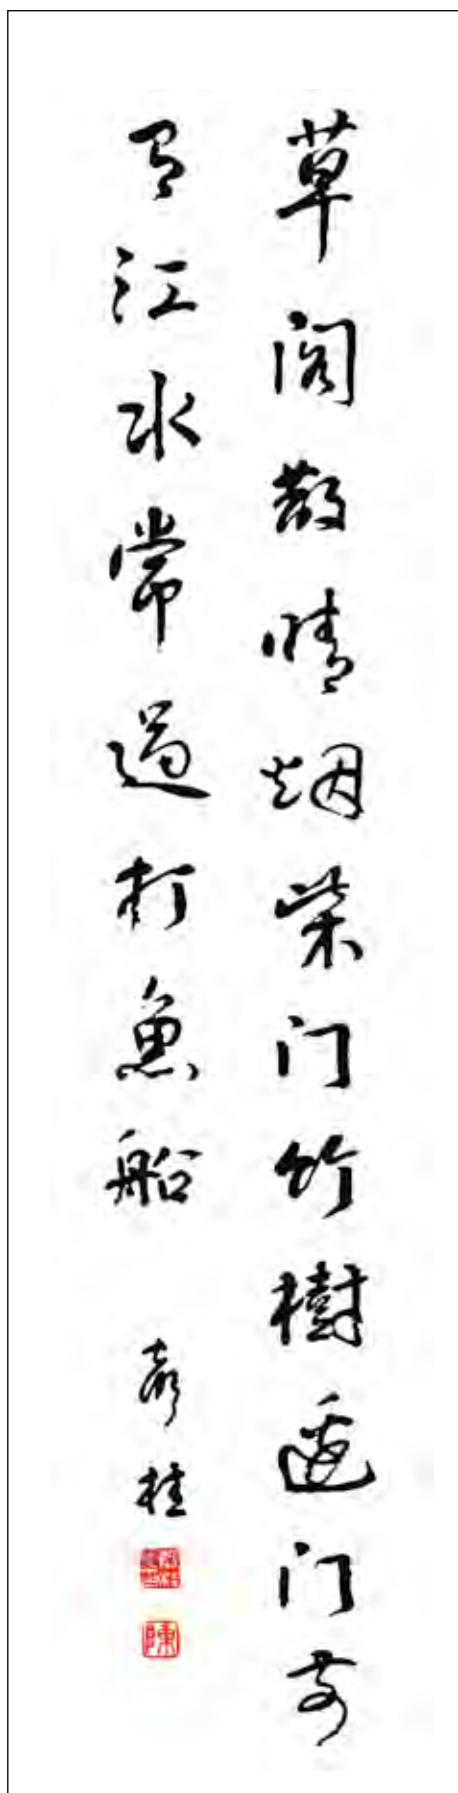 草阁散晴烟柴门竹樹邊门前
有江水常過打魚船
桂
陳